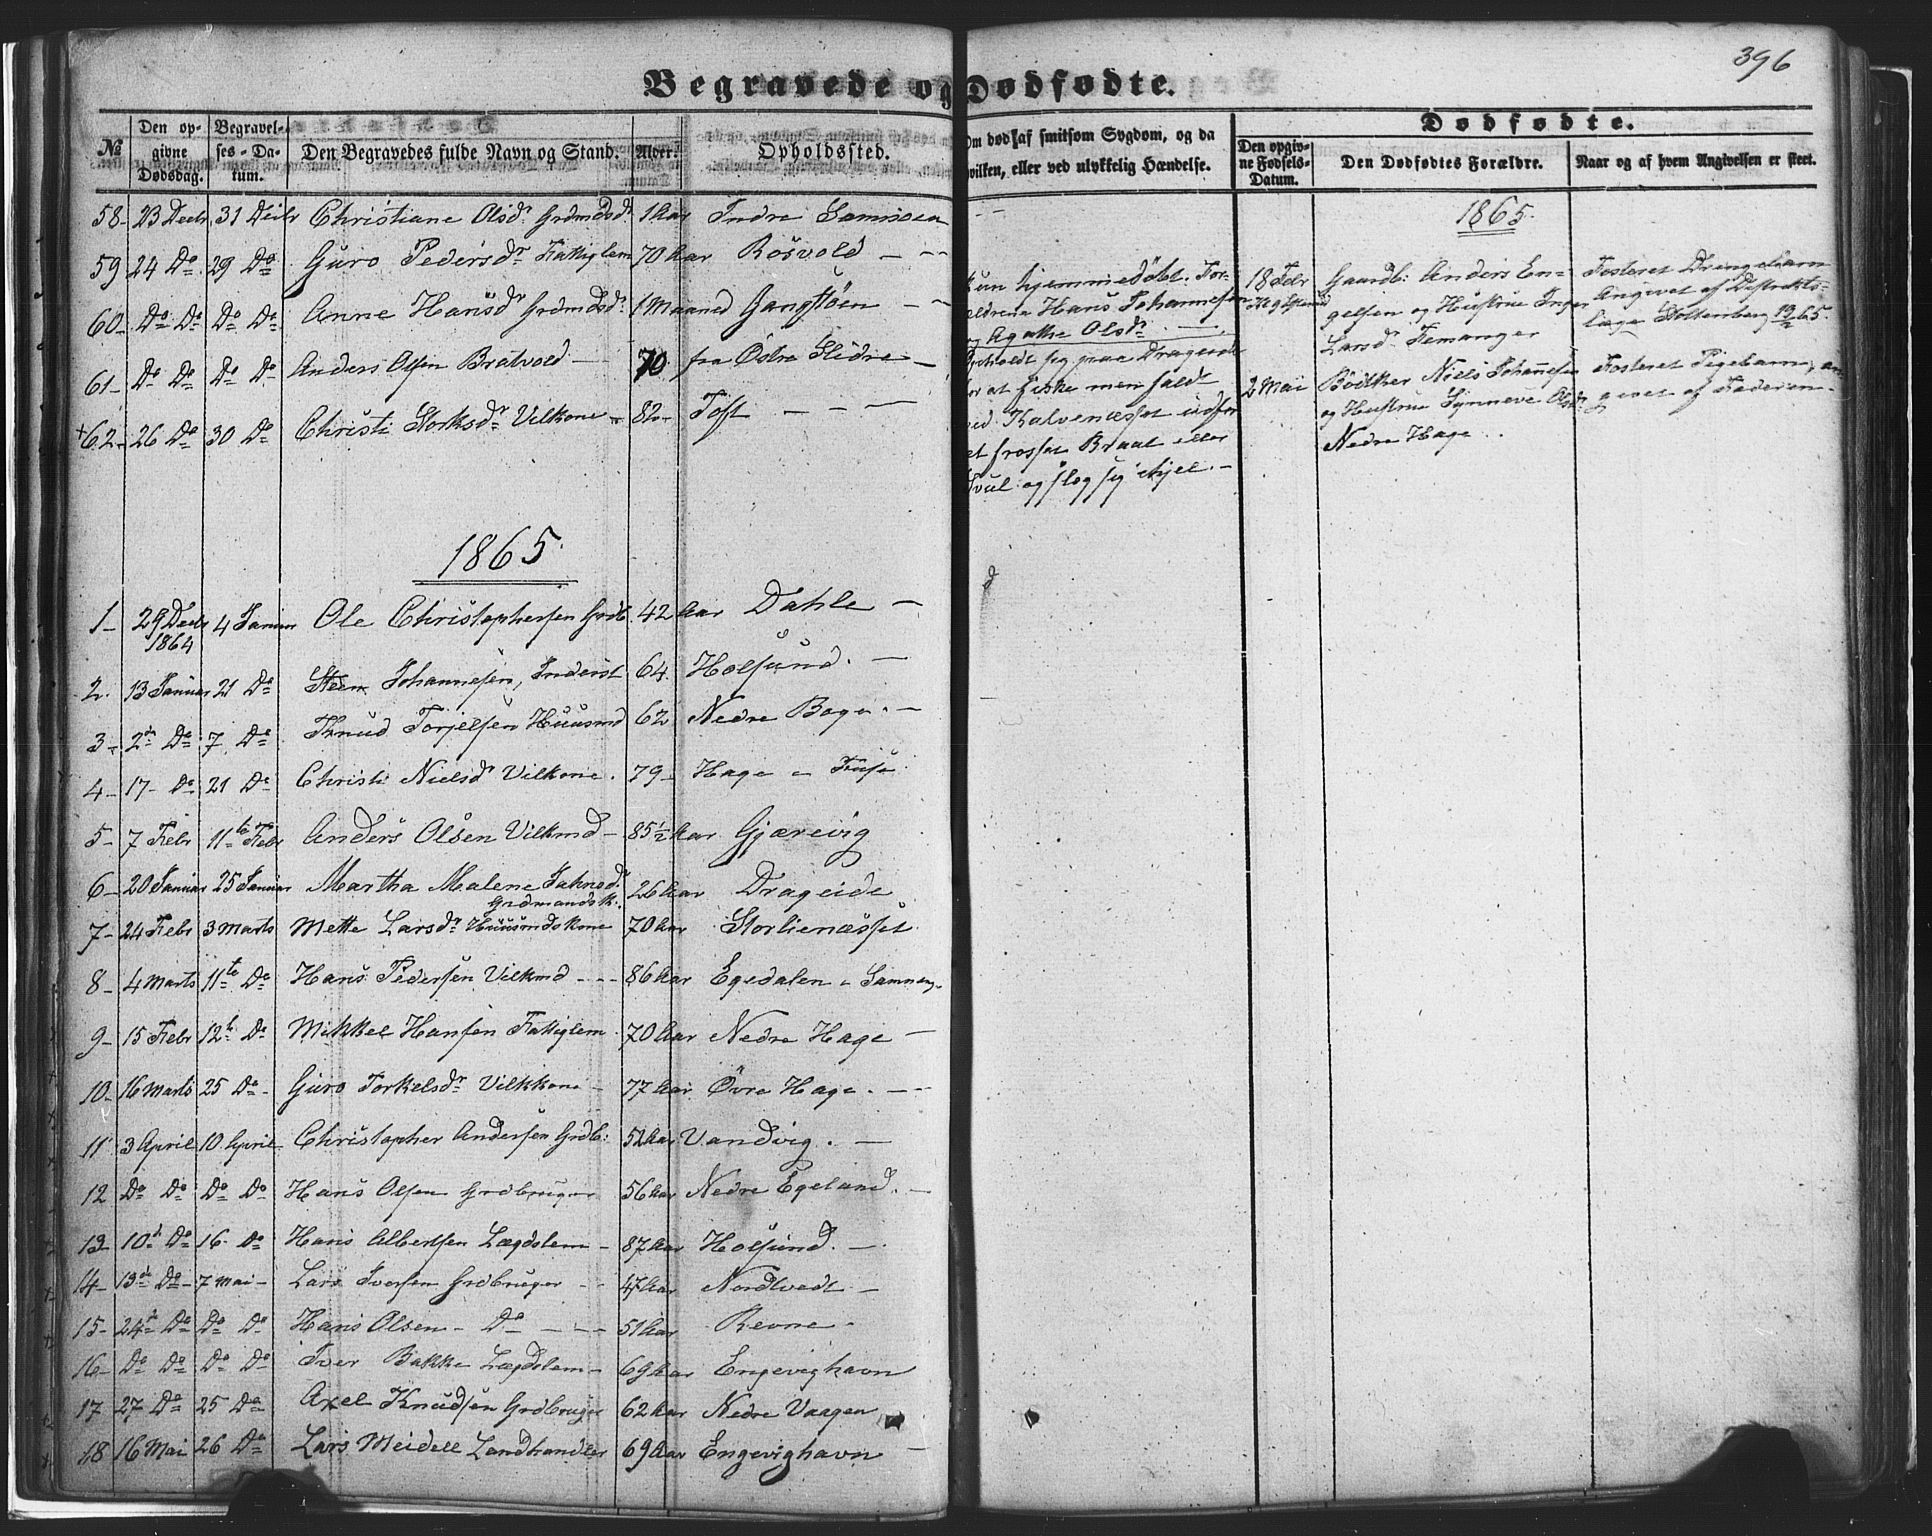 396
Begravede og Dødfødte.
№
Den opgivne Dødsdag.
Begravelses-Datum.
Den Begravedes fulde Navn og Stand.
Alder.
Opholdssted.
Om død af smitsom Sygdom, og da
hvilken, eller ved ulykkelig Hændelse.
Dødfødte.
Den opgivne Fødsels-Datum.
Den Dødfødtes Forældre.
Naar og af hvem Angivelsen er skeet.
58 23 Decbr 31 Decbr Christiane Olsdr Grdmdsdr 1 Aar Indre
59 24 Do 29 Do Guro Pedersdr Fattiglem 70 Aar Rösvold
60 Do Do Do Do Anne Hansdr Grdmdsdr 1 Maaned Gangstöen
61 Do Do Do Do Anders Olsen Bratvold 70 fra Östre Slidre
62 26 Do 30 Do Christi Storksdr Vilkone 82 Töft
kun hjemmedöbt. For-
ældrene Hans Johannesen
og Agathe Olsdr
Opholdt sig paa Drageide
for at fiske men faldt
ved Kalvenæsset udfor
et frosset Braat eller
Svul og slog sig ihjel.
1865
18 Febr Gaardb: Anders En-
gelsen og Hustrue Inger
Larsdr Femanger
Fosteret Drengebarn
Angivet af Distrikts-
læge Doltenberg 65
2 Mai Bödtker Niels Johannesen
og Hustrue Synneve Olsdr
Nedre Hage
Fosteret Pigebarn, an
givet af Faderen
1865
1 29 Decbr 1864 4 Januar Ole Christophersen Grdb. 42 Aar Dahle
2 13 Januar 21 Do Steen Johannesen, Inderst 64 Holsund
3 2de Do 7 Do Knud Torjelsen Huusmd 62 Nedre Boge
4 17 Do 21 Do Christi Nielsdr Vilkone 79 Hage i Fuse
5 7 Febr 11te Febr Anders Olsen Vilkmd 85 1/2 Aar Gjærevig
6 20 Januar 25 Januar Martha Malene Jahnsd.
Grdmandsk. 26 Aar Drageide
7 24 Febr 3 Marts Mette Larsdr Huusmdskone 70 Aar Storlienæsset
8 4 Marts 11te Do Hans Pedersen Vilkmd 86 Aar Egedalen i Samnang
9 15 Febr 12te Do Mikkel Hansen Fattiglem 70 Aar Nedre Hage
10 16 Marts 25 Do Guro Torkelsdr Vilkkone 77 Aar Övre Hage
11 3 April 10 April Christopher Andersen Grdb: 52 Aar Vandvig
12 Do Do Do Do Hans Olsen Grdbruger 56 Aar Nedre Egeland
13 10de Do 16 Do Hans Albertsen Lægdslem 87 Aar Holsund
14 13de Do 7 Mai Lars Iversen Grdbruger 47 Aar Nordtvedt
15 24de Do Do Do Hans Olsen Do 51 Aar Revne
16 Do Do Do Do Iver Bakke Lægdslem 69 Aar Engevighavn
17 27 Do 25 Do Axel Knudsen Grdbruger 62 Aar Nedre Vaagen
18 16 Mai 26 Do Lars Meidell Landhandler 69 Aar Engevighavn